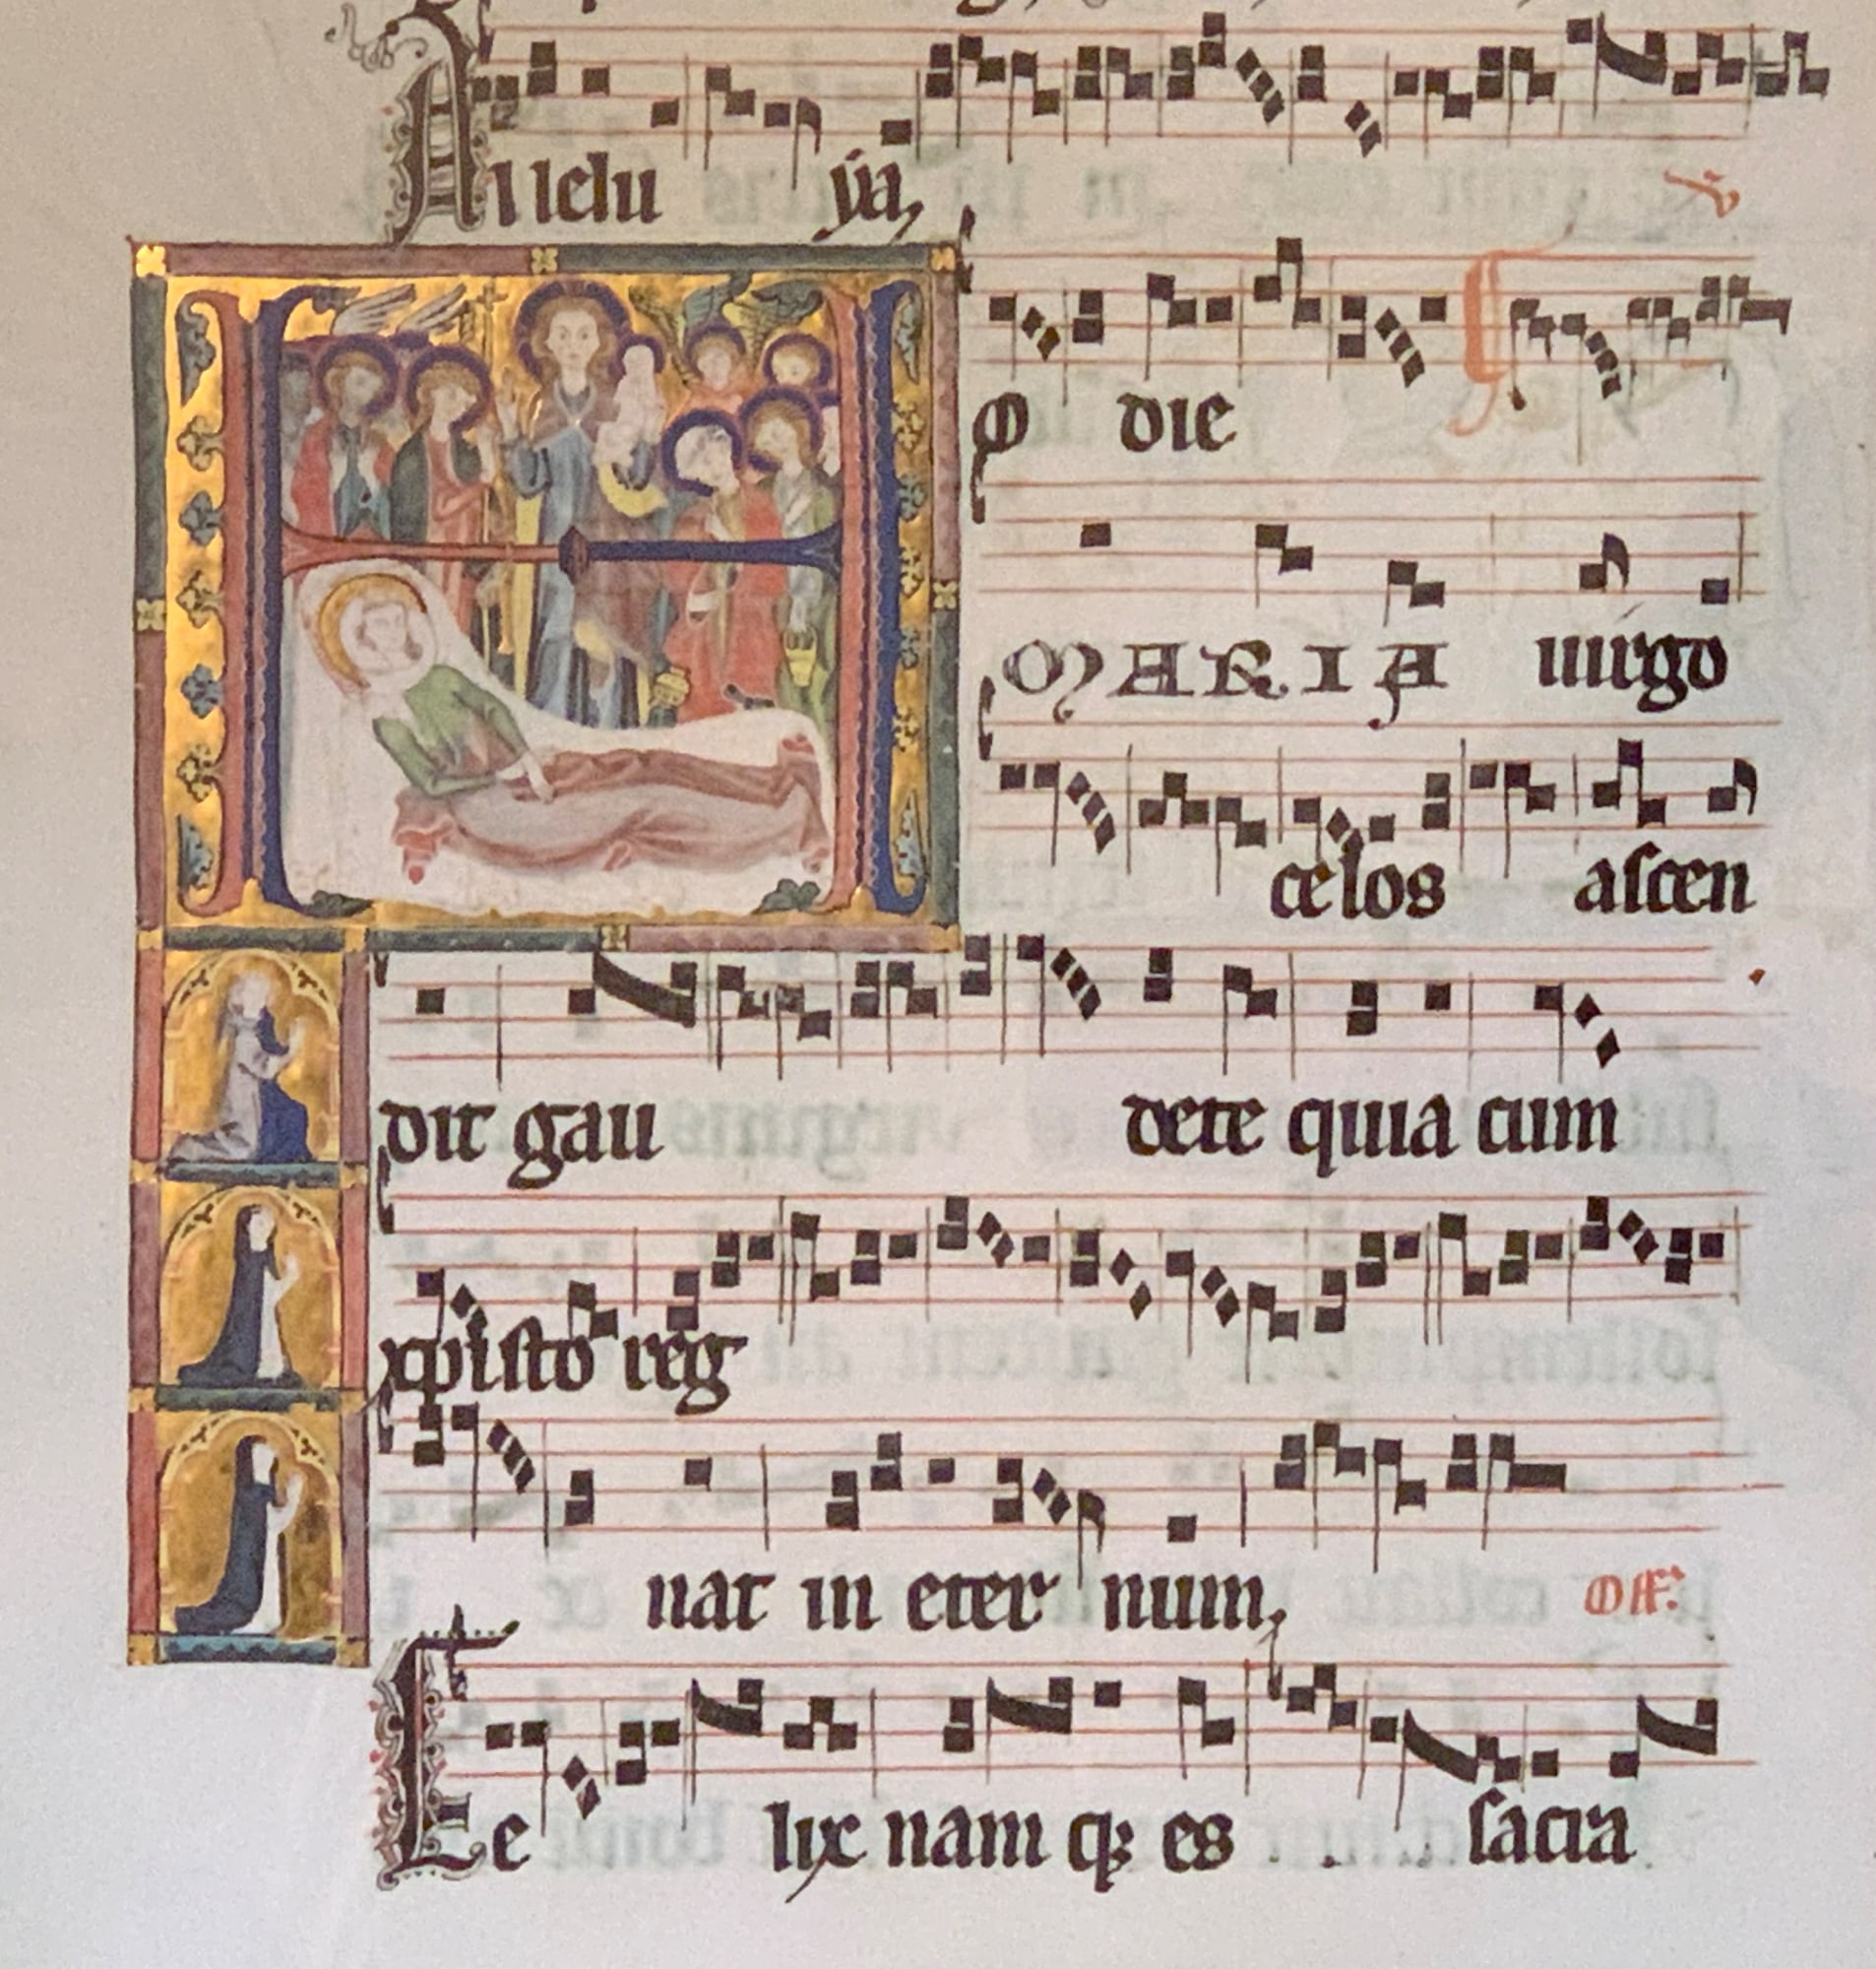 Allelu ÿa,
℣
Hodie
MARIA uirgo
celos aſcen
dit gau dete quia cum
xpiſto reg
nat in eter num, Off.
Fe lix nam qꝫ es ſacra